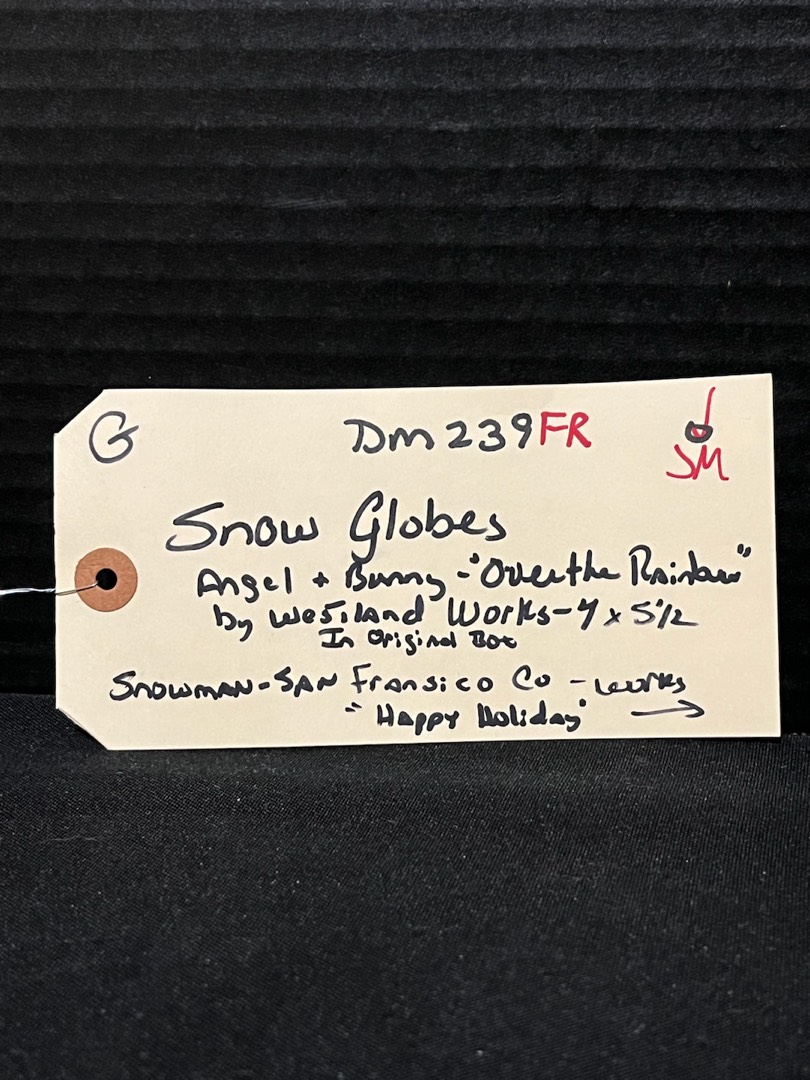 G Dm239FR
SM
Snow Globes
Angel + Bunny - "Over the Rainbow"
by Westland Works - 4 x 5 1/2
In Original Box
Snowman - SAN Fransico Co - works
"Happy Holiday" →